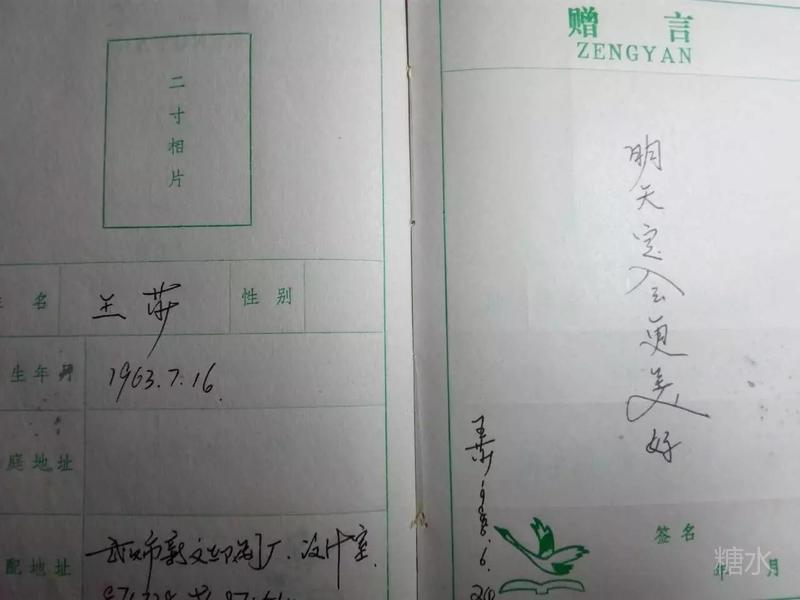 二寸相片
名 王莎 性别
生年月 1963.7.16.
庭地址
配地址 武汉市新文印刷厂.设计室.
赠言
ZENGYAN
明天定会更美好
王莎
签名
年 月
糖水